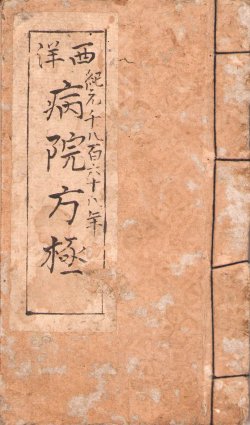 西洋
紀元千八百六十八年
病院方極